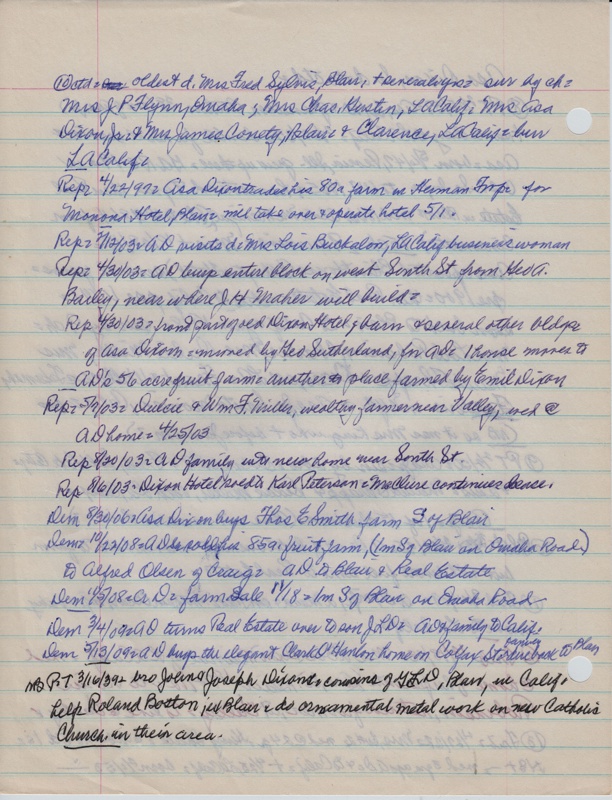 oldest d. Mrs Fred Sylvis, Blair, + several yrs = sur by ch =
Mrs J P Flynn, Omaha; Mrs Chas. Kersten, LA Calif; Mrs Asa
Dixon, Jr. & Mrs James Conety, Blair & Clarence, LA Calif = bur
LA Calif.
Rep = 4/22/97 = Asa Dixon trades his 80a farm in Herman Twp. for
Monona Hotel, Blair = will take over & operate hotel 5/1.
Rep = /12/03 = A D visits d. Mrs Lois Buckalow, LA Calif business woman
Rep = 4/30/03 = AD buys entire block on west South St from Geo A.
Bailey, near where J H Maher will build =
Rep 4/30/03 = front part of old Dixon Hotel, barn & several other bldgs
of Asa Dixon = moved by Geo Sutherland, for AD = 1 house moves to
AD's 56 acre fruit farm = another place farmed by Emil Dixon
Rep = 5/7/03 = Dulcie & Wm F. Miller, wealthy farmer near Valley, wed @
AD home = 4/25/03
Rep 8/20/03 = AD family into new home near South St
Rep 8/6/03 = Dixon Hotel sold to Karl Peterson = McClure continues lease.
Dem 8/30/06 = Asa Dixon buys Thos E Smith farm S of Blair
Dem = 10/22/08 = AD sold his 85a fruit farm, (1m S of Blair on Omaha Road)
to Alfred Olsen of Craig = AD to Blair & Real Estate
Dem /08 = A D = farm Sale 11/18 = 1m S of Blair on Omaha Road
Dem 3/4/09 = AD turns Real Estate over to son J L D = AD & family to Calif.
Dem 5/13/09 = AD buys the elegant Clark O'Hanlon home on Colfax St = family back to Blair
P-T 3/16/39 = bro John & Joseph Dixon = cousins of G L D, Blair, in Calif.
help Roland Botton, in Blair & do ornamental metal work on new Catholic
Church in their area.